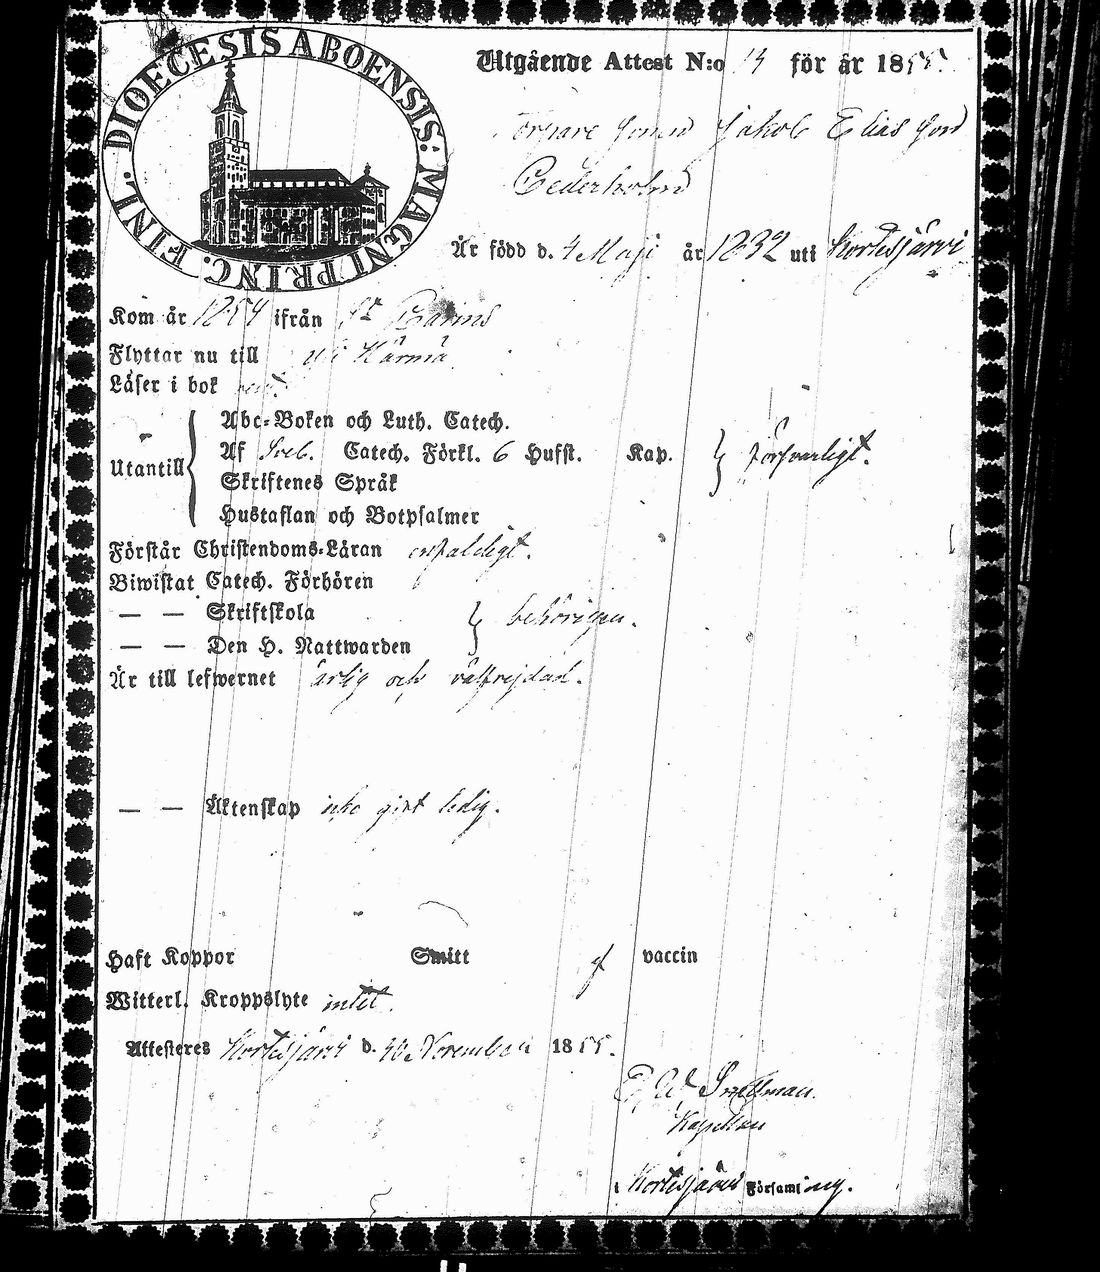 DIOECESIS ABOENSIS: MAGNI PRINC. FINL.
Utgående Attest N:o 13 för år 1855.
Torpare Jakob Elias
Cederholm
Är född d. 4 Maji år 1832 uti Kortesjärvi
Kom år 1854 ifrån
Flyttar nu till Härmä.
Läser i bok
Utantill
Abc-Boken och Luth. Catech.
Af Sveb. Catech. Förkl. 6 Hufst. Kap. försvarligt.
Skriftenes Språk
Hustaflan och Botpsalmer
Förstår Christendoms-Läran enfaldigt.
Biwistat Catech. Förhören
— — Skriftskola behörigen.
— — Den H. Nattwarden
Är till lefwernet ärlig och välfrejdad.
— — Äktenskap icke gift ledig.
Haft Koppor Smitt af vaccin
Witterl. Kroppslyte intet.
Attesteres Kortesjärvi d. November 1855.
Snellman.
Kapellan
i Kortesjärvi Församling.